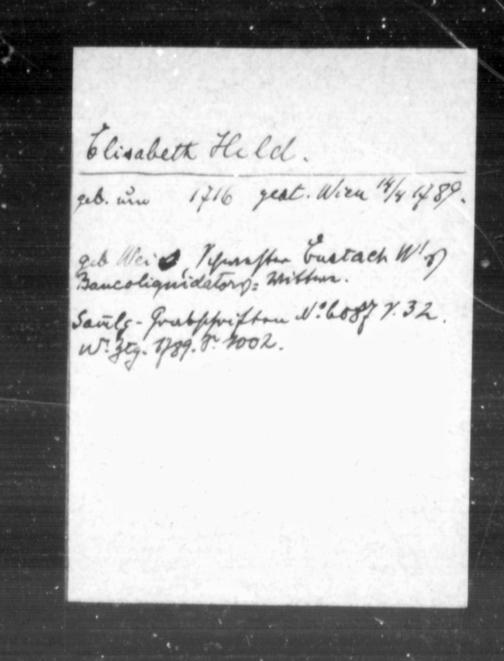 Elisabeth Held.
geb. um 1716 gest. Wien 14/4 1789.
geb. Schwester Eustach W's
Bancoliquidators= Wittwe.
Samlg- Grabschriften No. 6087 S. 32.
Wr. Ztg. 1789. S. 1002.